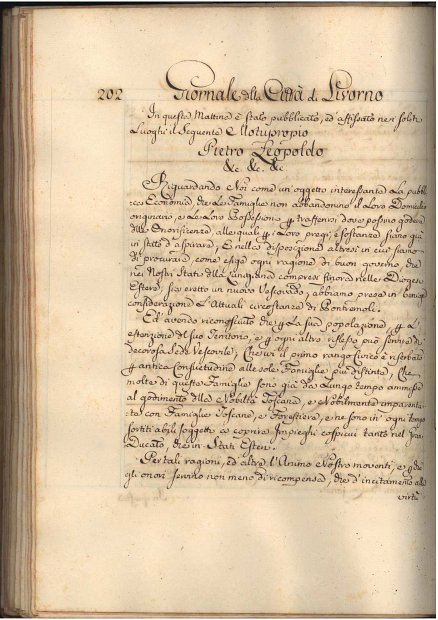 202 Giornale della Città di Livorno
In questa Mattina è stato pubblicato, ed affissato nei soliti
Luoghi il Seguente Motuproprio
Pietro Leopoldo
&c. &c. &c.
Riguardando Noi come un' oggetto interessante La pubbli-
ca Economia, che Le Famiglie non abbandonino il Loro Domicilio
originario, e Le Loro Possessioni p trasferirsi dove possino godere
delle Onorificenze, alle quali p i Loro pregi, e sostanze siano già
in stato d'aspirare; E nella disposizione altresì in cui siamo
di procurare, come esige ogni ragione di buon governo, che
nei Nostri Stati della Lunigiana compresi finora nelle Diogesi
Estere, sia eretto un nuovo Vescovado, abbiamo prese in benigna
considerazione Le attuali circostanze di Pontremoli.
Ed' avendo riconosciuto che p La sua popolazione, p L'
estenzione del suo Territorio, e p ogni altro riflesso può servire di
decorosa Sede Vescovile; Che ivi il primo rango Civico è riserbato
p antica consuetudine alle sole Famiglie più distinte, Che
molte di queste Famiglie sono già da Lungo tempo ammesse
al godimento della Nobiltà Toscana, e Nobilmente imparenta-
te con Famiglie Toscane, e Forestiere, e ne sono in ogni tempo
sortiti abili soggetti a coprire Impieghi cospicui tanto nel Gran
Ducato che in Stati Esteri.
Per tali ragioni, ed' altre L'Animo Nostro moventi, e p che
gli onori servino non meno di ricompensa, che d'incitamento alla
virtù